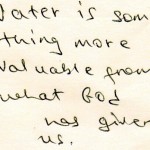 Water is som
thing more
valuable from
what God
has given
us.